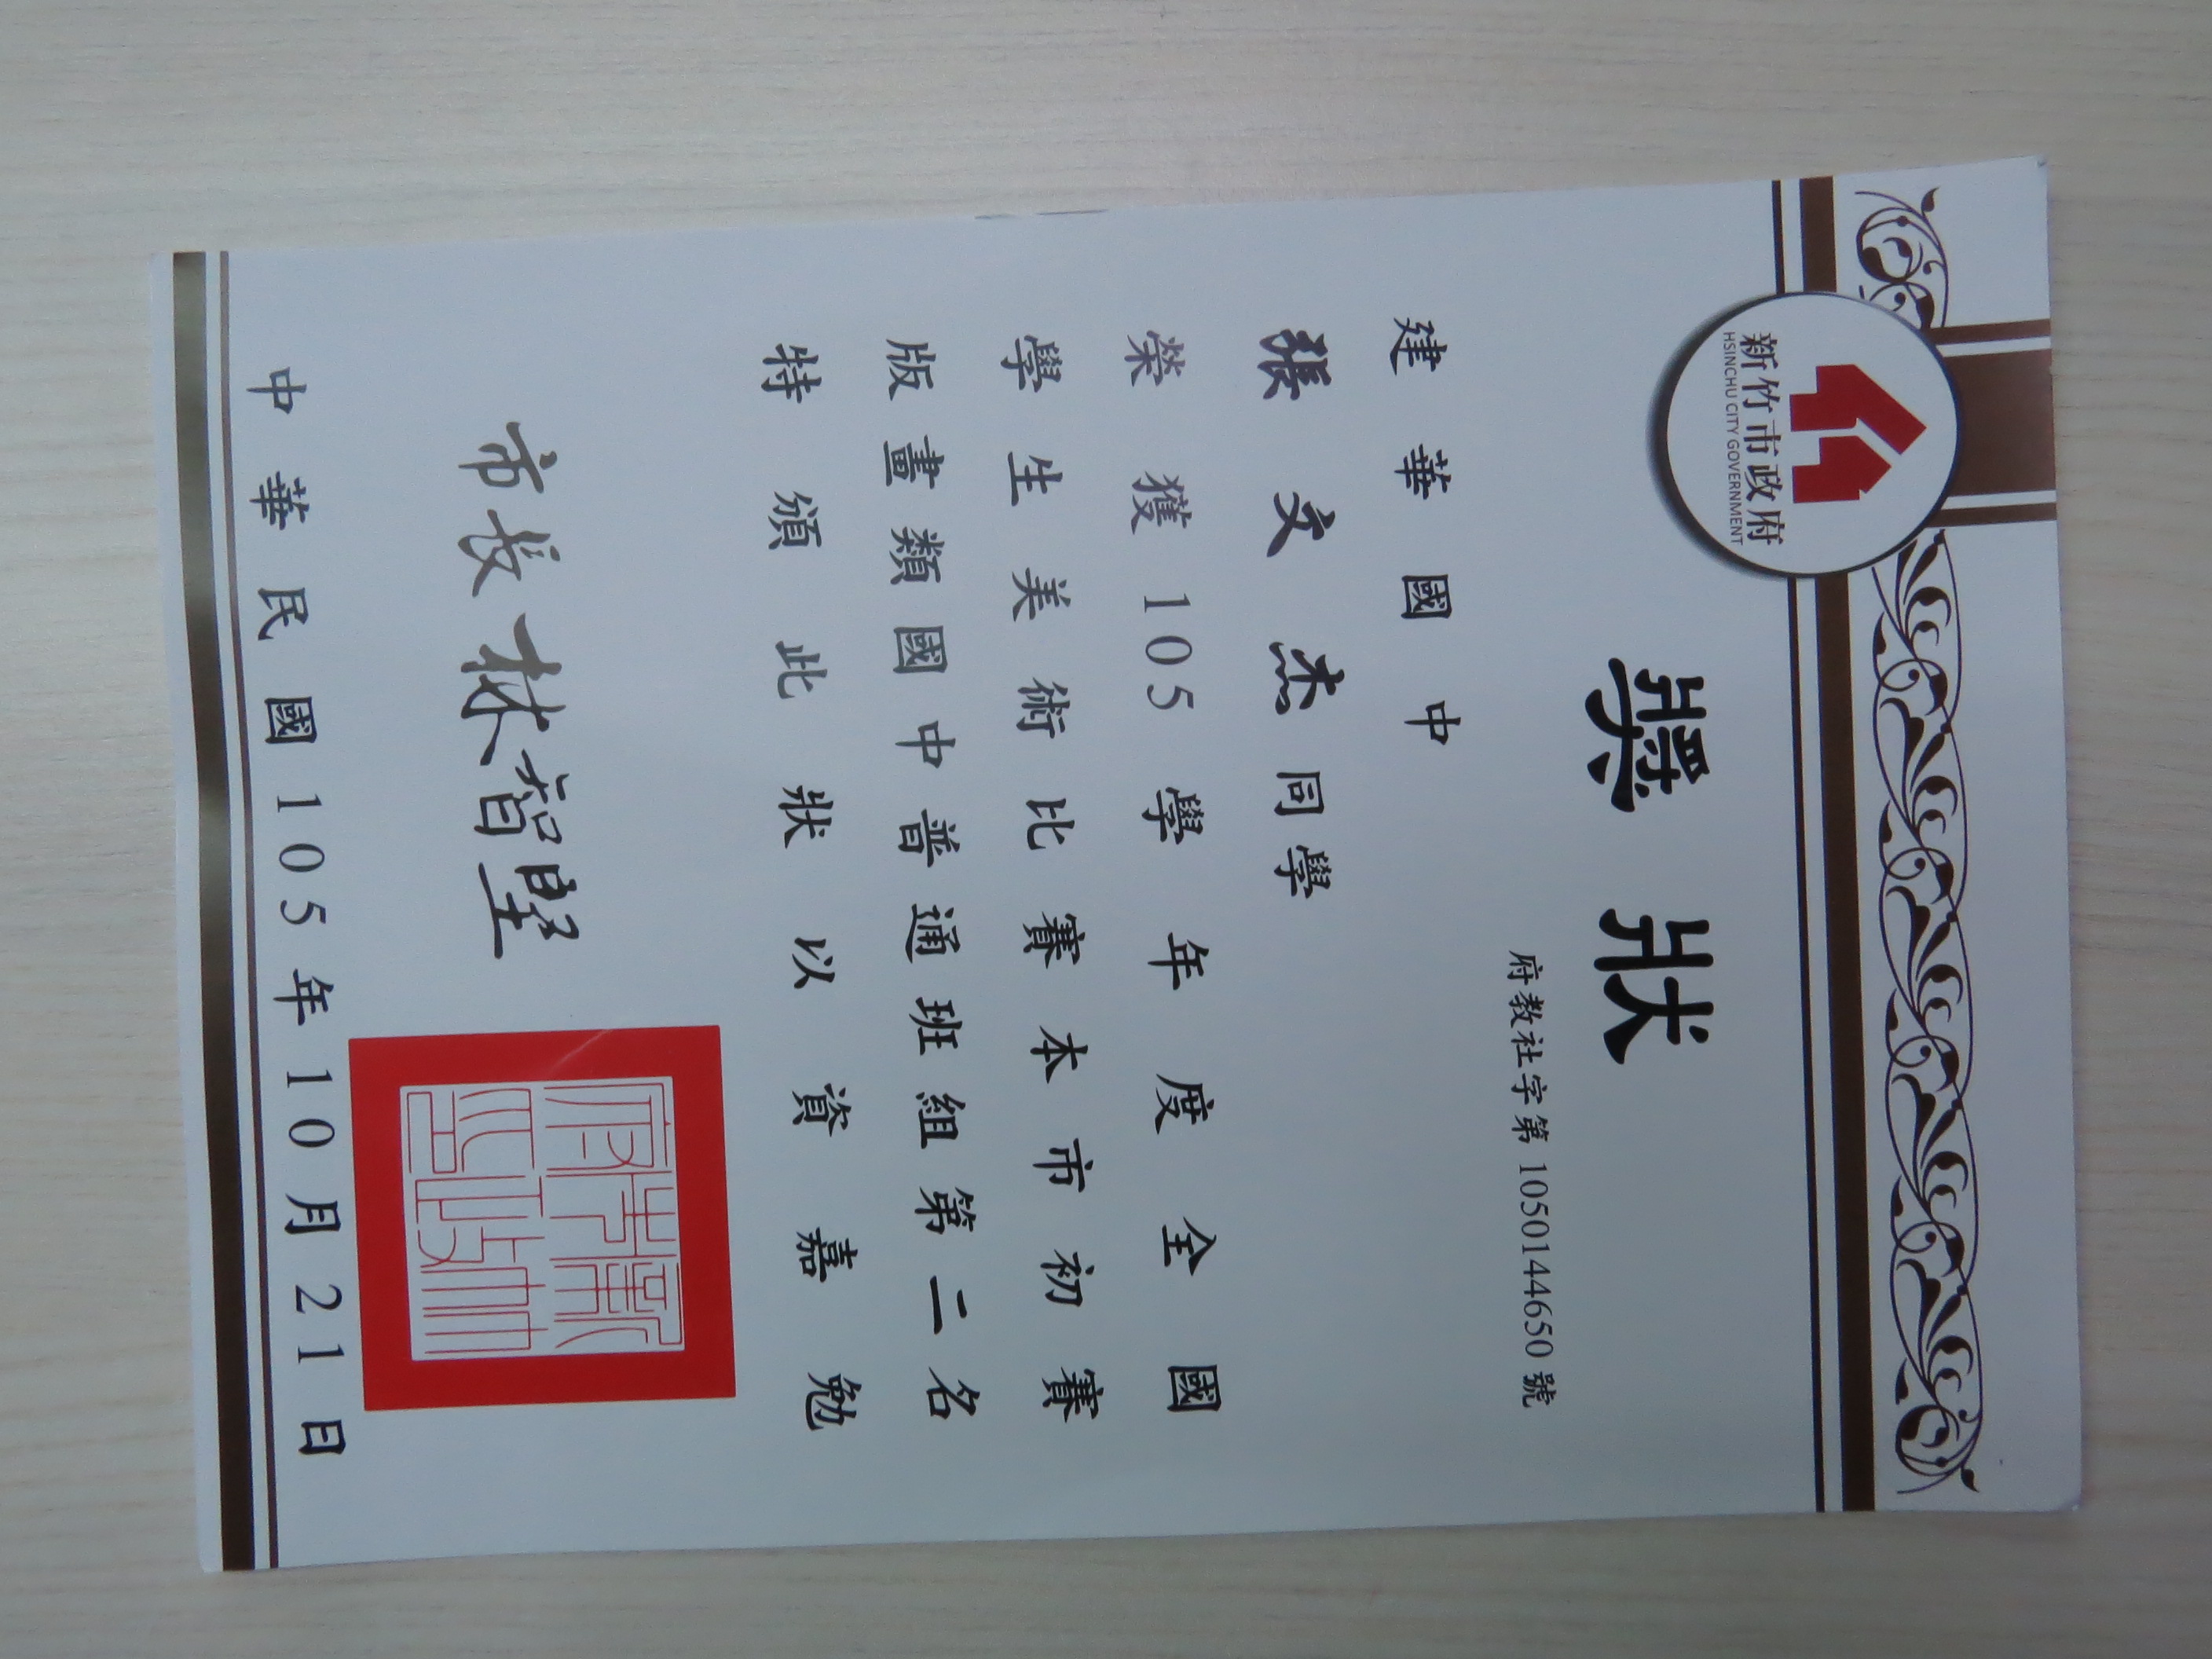 新竹市政府
HSINCHU CITY GOVERNMENT
獎狀
府教社字第 1050144650 號
建華國中
張文杰同學
榮獲105學年度全國
學生美術比賽本市初賽
版畫類國中普通班組第二名
特頒此狀以資嘉勉
市長林智堅
中華民國105年10月21日